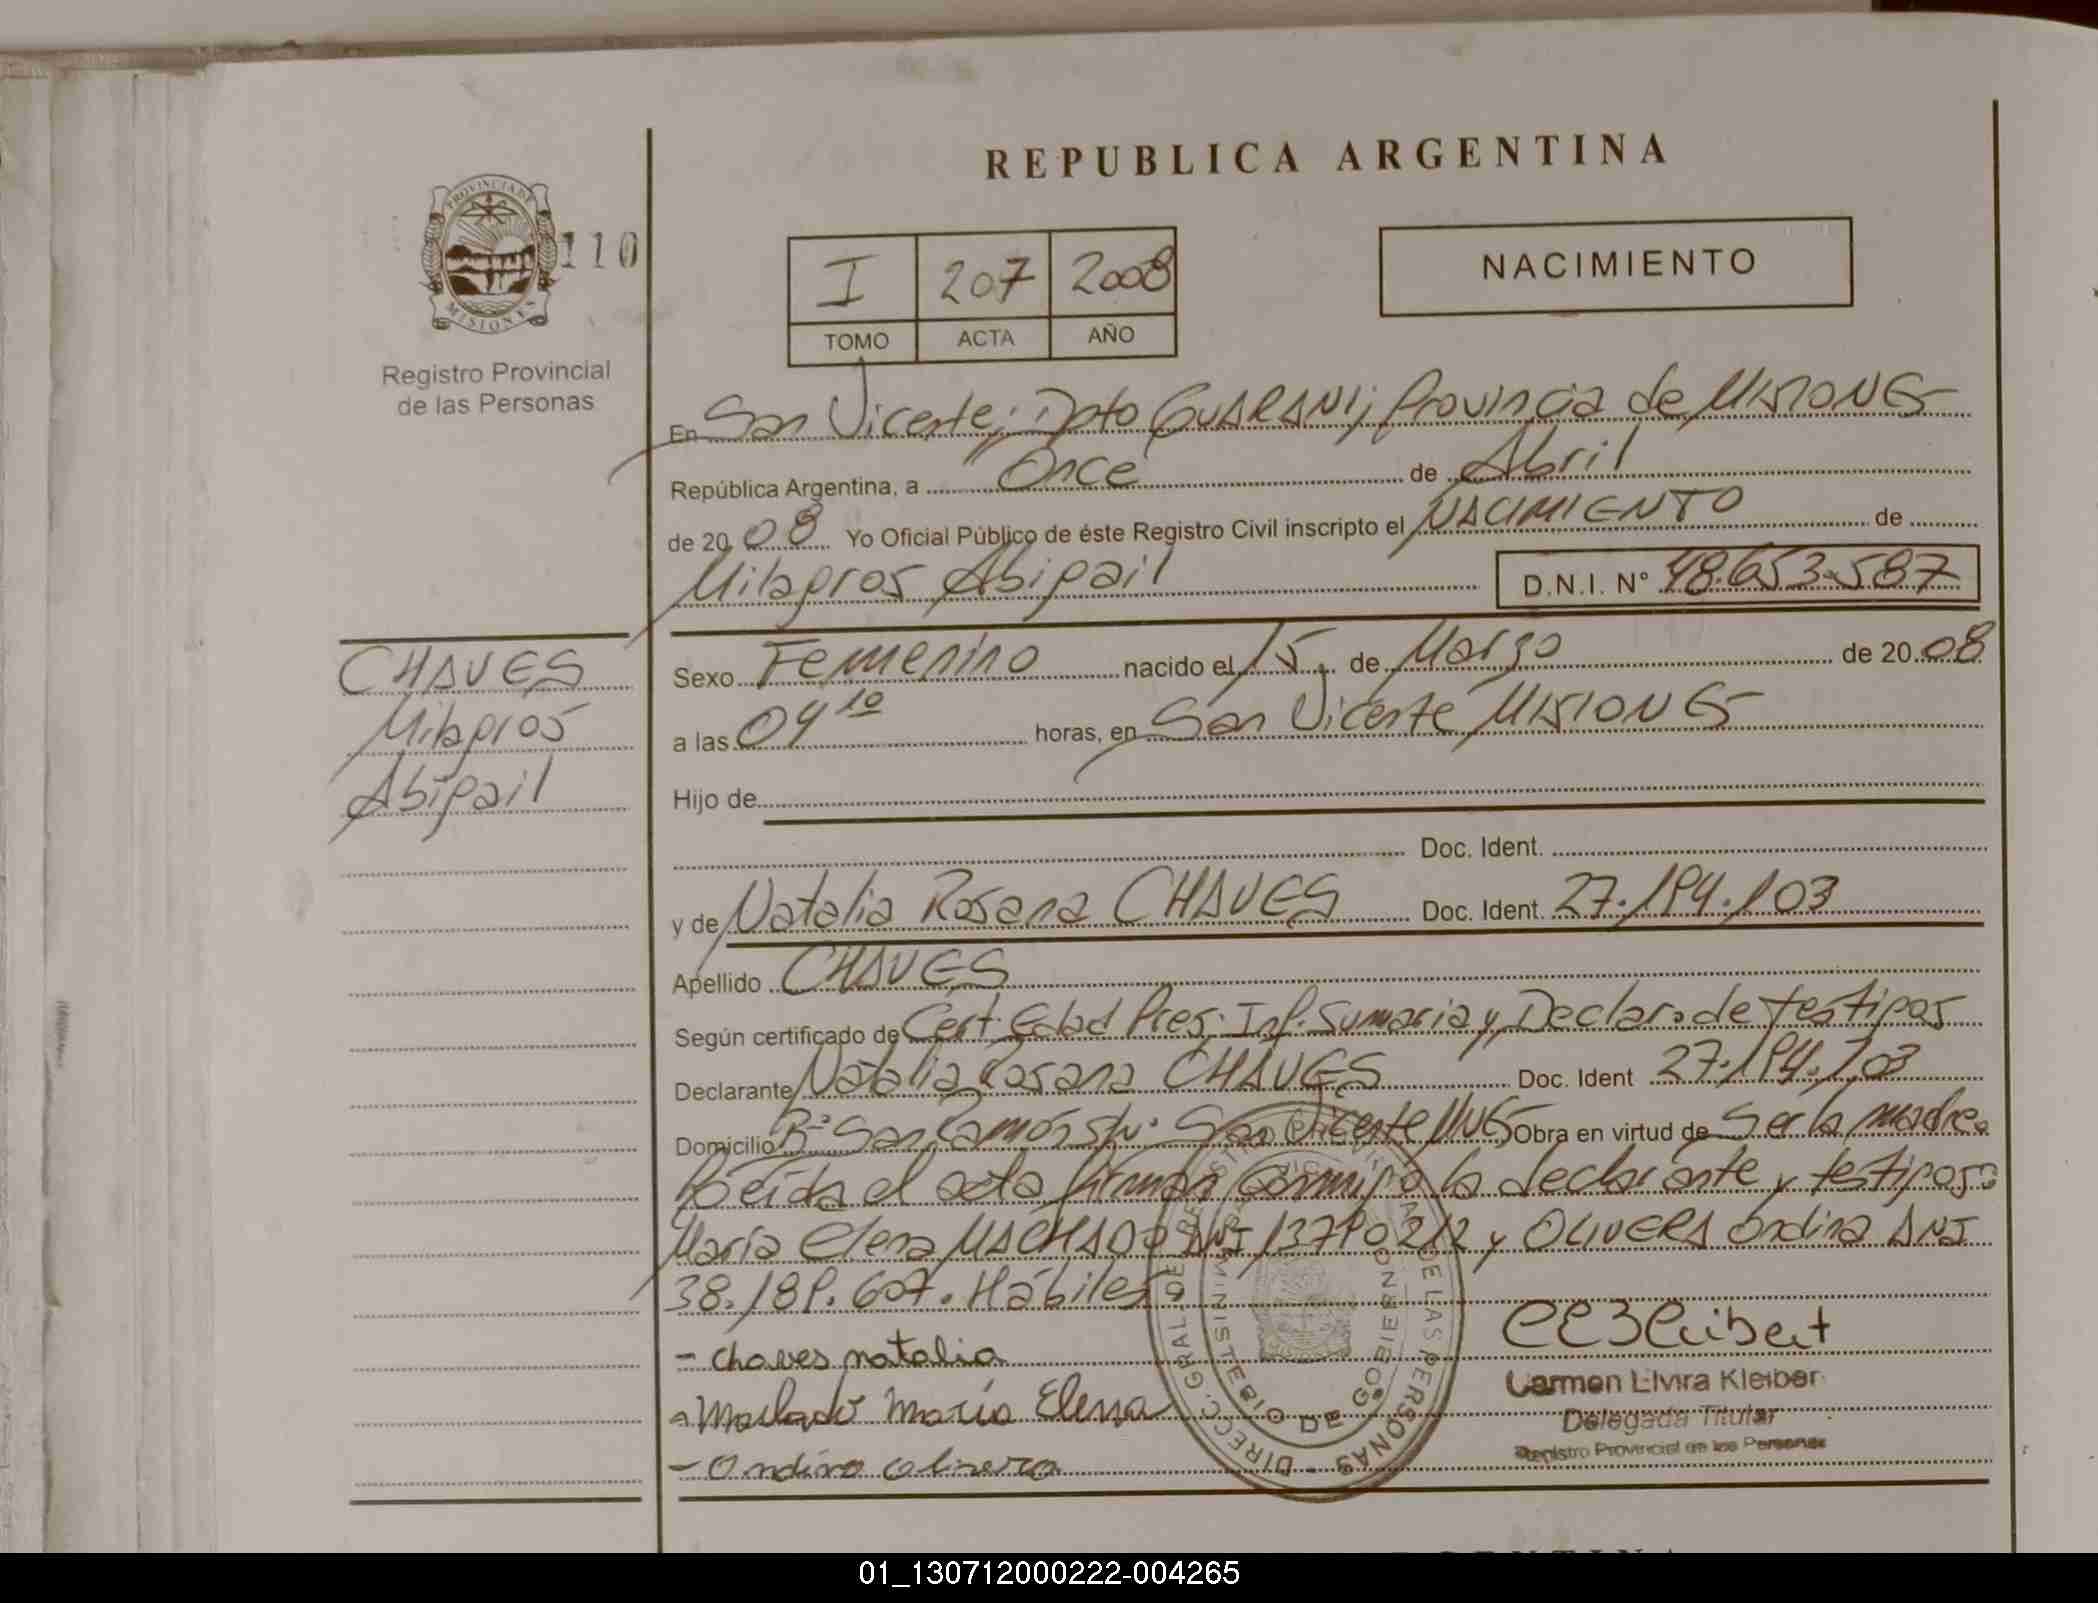 REPUBLICA ARGENTINA
PROVINCIA DE
MISIONES
110
Registro Provincial
de las Personas
I 207 2008
TOMO ACTA AÑO
NACIMIENTO
En San Vicente; Dpto GUARANI; Provincia de MISIONES
República Argentina, a Once de Abril
de 2008 Yo Oficial Público de éste Registro Civil inscripto el NACIMIENTO de
Milagros Abigail D.N.I. N° 48.653.587
CHAVES
Milagros
Abigail
Sexo Femenino nacido el 15 de Marzo de 2008
a las 04 10 horas, en San Vicente MISIONES
Hijo de
Doc. Ident.
y de Natalia Rosana CHAVES Doc. Ident. 27.194.103
Apellido CHAVES
Según certificado de Cert. Edad Pres. Inf. Sumaria y Declar. de testigos
Declarante Natalia Rosana CHAVES Doc. Ident 27.194.103
Domicilio Bº San Ramón s/n. San Vicente Obra en virtud de Ser la madre.
Leída el acta firman conmigo la declarante y testigos:
María Elena MACHADO DNI y OLIVERA Ondina DNI
38.189.607. Hábiles
- Chaves natalia
- Machado María Elena
- Ondina olivera
DIRECC. GRAL. DE DE LAS PERSONAS
MINISTERIO DE GOBIERNO
Carmen Elvira Kleiber
Delegada Titular
Registro Provincial de las Personas
01_130712000222-004265